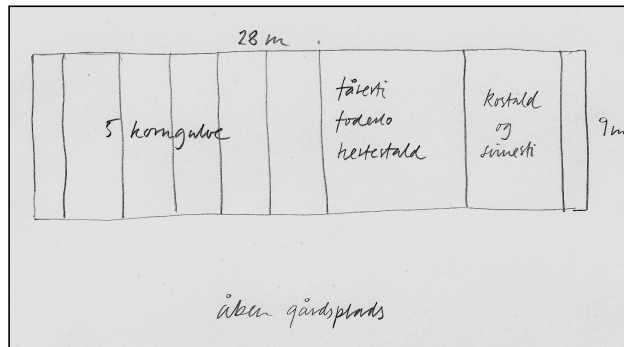 28 m
5 korngulve
fåresti
foderlo
hestestald
kostald
og
svinesti
9 m
åben gårdsplads